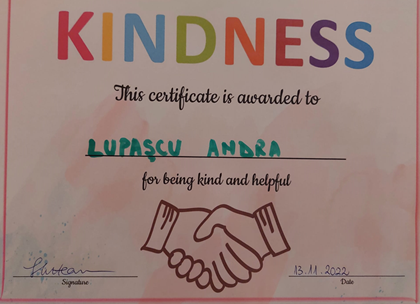 KINDNESS
This certificate is awarded to
LUPAŞCU ANDRA
for being kind and helpful
13.11.2022
Signature Date